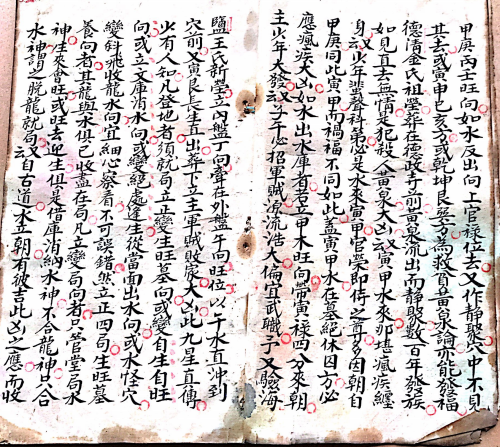 甲庚丙壬旺向如水反出向上官祿位去又作靜聚穴中不見
其去或寅申巳亥方或乾坤艮巽方為救貧黃泉水論亦能發福
德清金氏祖塋葬在德政寺前黃泉流出而靜聚數百年發族
如見直去無情是犯殺人黃泉大凶云寅甲水來那堪瘋疾纏
身云少年蜚聲科第必是水來寅甲官榮即侍之尊多因朝自
甲庚同此寅甲而禍福不同如此蓋寅甲水在墓絕休囚方必
應瘋疾大凶如水出水庫者若立甲木旺向帶黃祿四分來朝
主少年大發云子午必招軍賊源流浩大偏宜武職子又驗海
鹽王氏新塋立內盤丁向聾在外盤午向旺位以午水直沖到
穴前又寅艮長生直出葬下立主軍賊敗家大凶此九星直傳
少有人知凡登地者須就局立正變生旺墓向或變自生自旺
向或立文庫消水向或變絕處逢生從當面出水向或水怪穴
變斜飛收龍水向宜細心察看不可誤錯然立正四局生旺墓
養向者其龍與水俱已收盡在局凡立變局向者只管堂局水
神生來會旺或旺去迎生俱是借庫消納水神不合龍神只合
水神謂之脫龍就局云自古道水立朝有被吉此凶之應而收